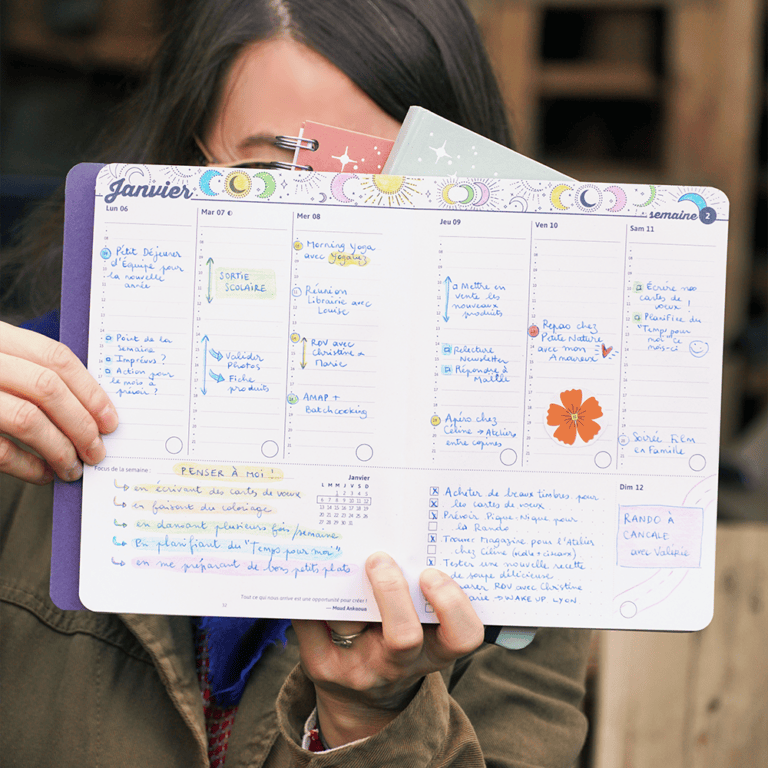 Janvier
semaine 2
Lun 06
Petit Déjeuner
d'Équipe pour
la nouvelle
année
Point de la
Semaine
Imprévus ?
Action pour
le mois à
prévoir ?
Mar 07
SORTIE
SCOLAIRE
Valider
Photos
Fiche
produits
Mer 08
Morning Yoga
avec Yogaris
Réunion
Librairie avec
Louise
RDV avec
Christine &
Marie
AMAP +
Batchcooking
Jeu 09
Mettre en
vente les
nouveaux
produits
Relecture
Newsletter
Répondre à
Apéro chez
Céline → Atelier
entre copines
Ven 10
Repas chez
Petite Nature
avec mon
Amoureux
Sam 11
Écrire nos
cartes de
voeux !
Planifier du
"Temps pour
moi" ce
mois-ci
Soirée Film
en Famille
Focus de la semaine :
PENSER À MOI !
en écrivant des cartes de voeux
en faisant du coloriage
en dansant plusieurs fois/semaine
En planifiant du "Temps pour moi"
en me préparant de bons petits plats
Janvier
L M M J V S D
1 2 3 4 5
6 7 8 9 10 11 12
13 14 15 16 17 18 19
20 21 22 23 24 25 26
27 28 29 30 31
Tout ce qui nous arrive est une opportunité pour créer !
— Maud Ankaoua
Acheter de beaux timbres pour
les cartes de voeux
Prévoir Pique-Nique pour
la Rando
Trouver Magazine pour l'Atelier
chez Céline (colle + ciseaux)
Tester une nouvelle recette
de soupe délicieuse
RDV avec Christine
→ WAKE UP LYON
Dim 12
RANDO À
CANCALE
avec Valérie